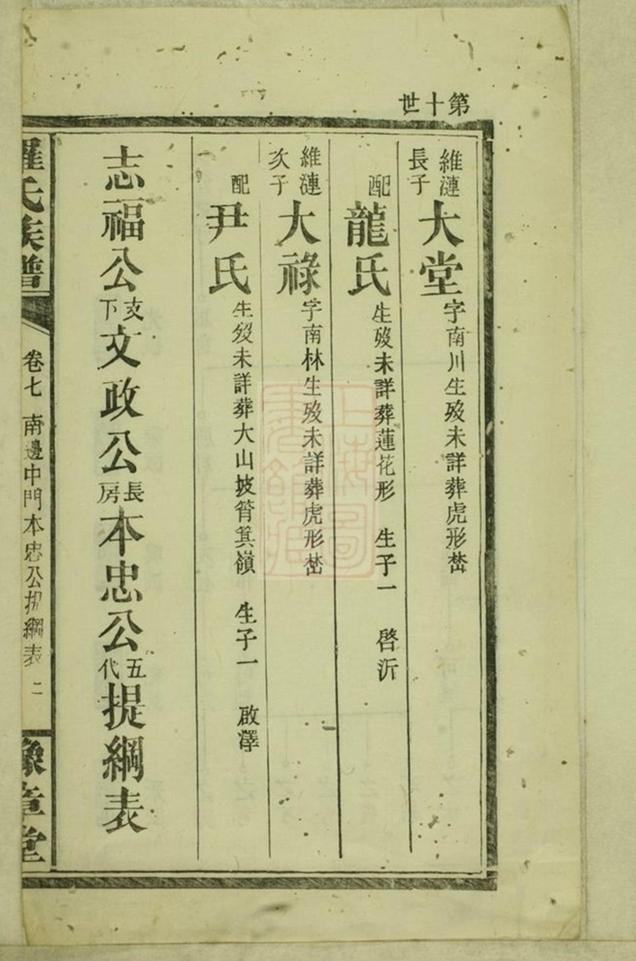 第十世
維漣長子 大堂 字南川生殁未詳葬虎形嵆
配 龍氏 生殁未詳葬蓮花形 生子一 啓沂
維漣次子 大祿 字南林生殁未詳葬虎形嵆
配 尹氏 生殁未詳葬大山坡筲箕嶺 生子一 啟澤
志福公支下文政公長房本忠公五代提綱表
羅氏族譜 卷七 南邊中門本忠公提綱表 二 豫章堂